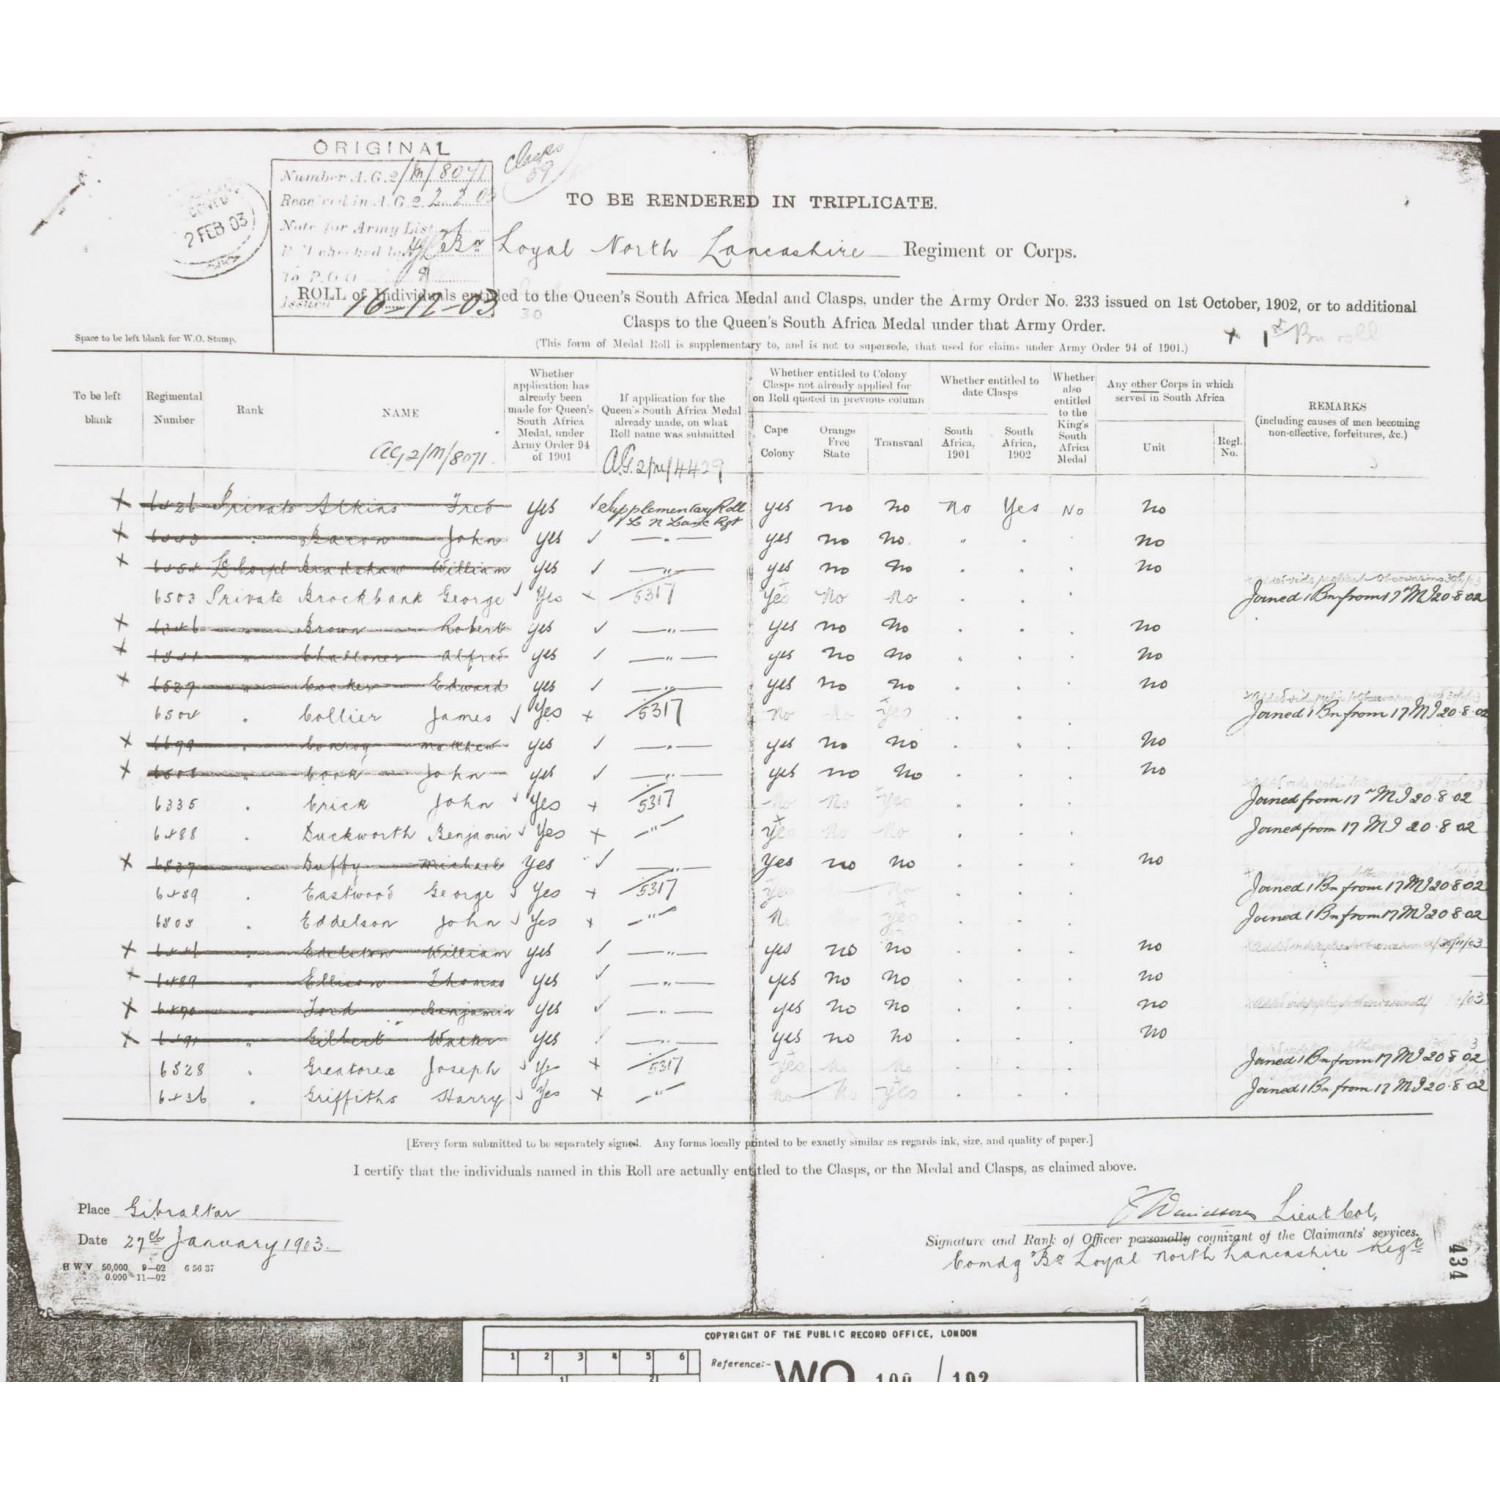 ORIGINAL
Number A.G. 2/M/8071
Clasps
59
Received in A.G. 2 2.2.03
TO BE RENDERED IN TRIPLICATE.
2 FEB 03
Note for Army List
Loyal North Lancashire Regiment or Corps.
To P.
Issued 16-12-03
ROLL of Individuals entitled to the Queen's South Africa Medal and Clasps, under the Army Order No. 233 issued on 1st October, 1902, or to additional
Clasps to the Queen's South Africa Medal under that Army Order.
+ 1st Bn roll
Space to be left blank for W.O. Stamp.
(This form of Medal Roll is supplementary to, and is not to supersede, that used for claims under Army Order 94 of 1901.)
To be left blank
Regimental Number
Rank
NAME
AG2/M/8071.
Whether application has already been made for Queen's South Africa Medal, under Army Order 94 of 1901
If application for the Queen's South Africa Medal already made, on what Roll name was submitted
A.G.2/M/4429
Whether entitled to Colony Clasps not already applied for on Roll quoted in previous column
Cape Colony
Orange Free State
Transvaal
Whether entitled to date Clasps
South Africa, 1901
South Africa, 1902
Whether also entitled to the King's South Africa Medal
Any other Corps in which served in South Africa
Unit
Regl. No.
REMARKS
(including causes of men becoming non-effective, forfeitures, &c.)
+ Private Atkins Fred yes ✓ Supplementary Roll yes no no No Yes No no
1 L N Lanc Rgt
+ " Bacon John yes ✓ — " — yes no no. " . . no
+ L Corpl Bradshaw William yes ✓ — " — yes no no . . . no
6503 Private Brockbank George ✓ Yes + 5317 Yes No No . . . Joined 1 Bn from 17th MI 20.8.02
+ " Brown Robert yes ✓ — " — yes no no . . . no
+ " Challoner Alfred yes ✓ — " — yes no no . . . no
+ 6529 " Cocker Edward yes ✓ — " — yes no no . . . no
. Collier James ✓ Yes + 5317 no no Yes . . . Joined 1 Bn from 17 MI 20.8.02
+ " Conroy Matthew yes ✓ — " — yes no no . . . no
+ " Cook John yes ✓ — " — yes no no . . . no
6335 . Crick John ✓ Yes + 5317 No No Yes . . . Joined from 17th MI 20.8.02
6488 . Duckworth Benjamin ✓ Yes + — " — Yes No No . . . Joined from 17 MI 20.8.02
+ 6537 " Duffy Michael Yes ✓ — " — Yes no no . . . no
6489 . Eastwood George ✓ Yes + 5317 Yes No . . . Joined 1 Bn from 17 MI 20.8.02
. Eddelson John ✓ Yes + — " — yes . . . Joined 1 Bn from 17 MI 20.8.02
+ " Edelston William yes ✓ — " — yes no no . . . no
+ " Ellison Thomas yes ✓ — " — yes no no . . . no
+ 6490 " Ford Benjamin yes ✓ — " — yes no no . . . no
+ 6491 " Gilbert Walter yes ✓ — " — yes no no . . . no
6528 . Greatorex Joseph ✓ Ye + 5317 yes . . . Joined 1 Bn from 17 MI 20.8.02
6436 . Griffiths Harry ✓ Yes + — " — no No Yes . . . Joined 1 Bn from 17 MI 20.8.02
[Every form submitted to be separately signed. Any forms locally printed to be exactly similar as regards ink, size, and quality of paper.]
I certify that the individuals named in this Roll are actually entitled to the Clasps, or the Medal and Clasps, as claimed above.
Place Gibraltar
Lieut Col,
Date 27th January 1903.
Signature and Rank of Officer personally cognizant of the Claimants' services.
Comdg Bn Loyal North Lancashire Regt
H W V 50,000 9—02 6 56 37
0.000 11—02
434
COPYRIGHT OF THE PUBLIC RECORD OFFICE, LONDON
1 2 3 4 5 6
Reference:- WO 100/192